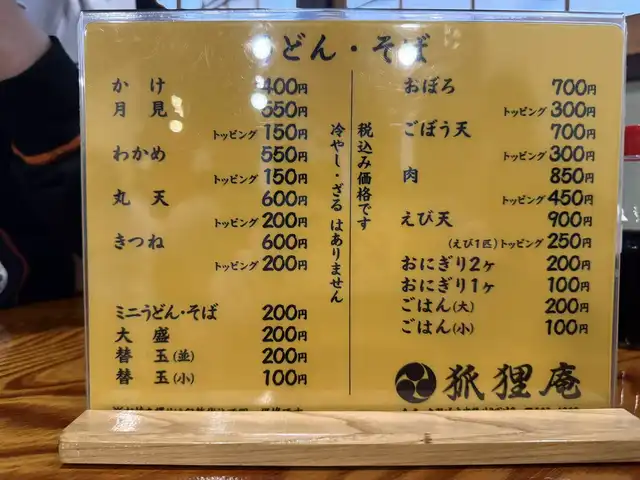 うどん・そば
かけ 400円
月見 550円
トッピング 150円
わかめ 550円
トッピング 150円
丸天 600円
トッピング 200円
きつね 600円
トッピング 200円
ミニうどん・そば 200円
大盛 200円
替玉(並) 200円
替玉(小) 100円
税込み価格です
冷やし・ざる はありません
おぼろ 700円
トッピング 300円
ごぼう天 700円
トッピング 300円
肉 850円
トッピング 450円
えび天 900円
(えび1匹)トッピング 250円
おにぎり2ヶ 200円
おにぎり1ヶ 100円
ごはん(大) 200円
ごはん(小) 100円
狐狸庵